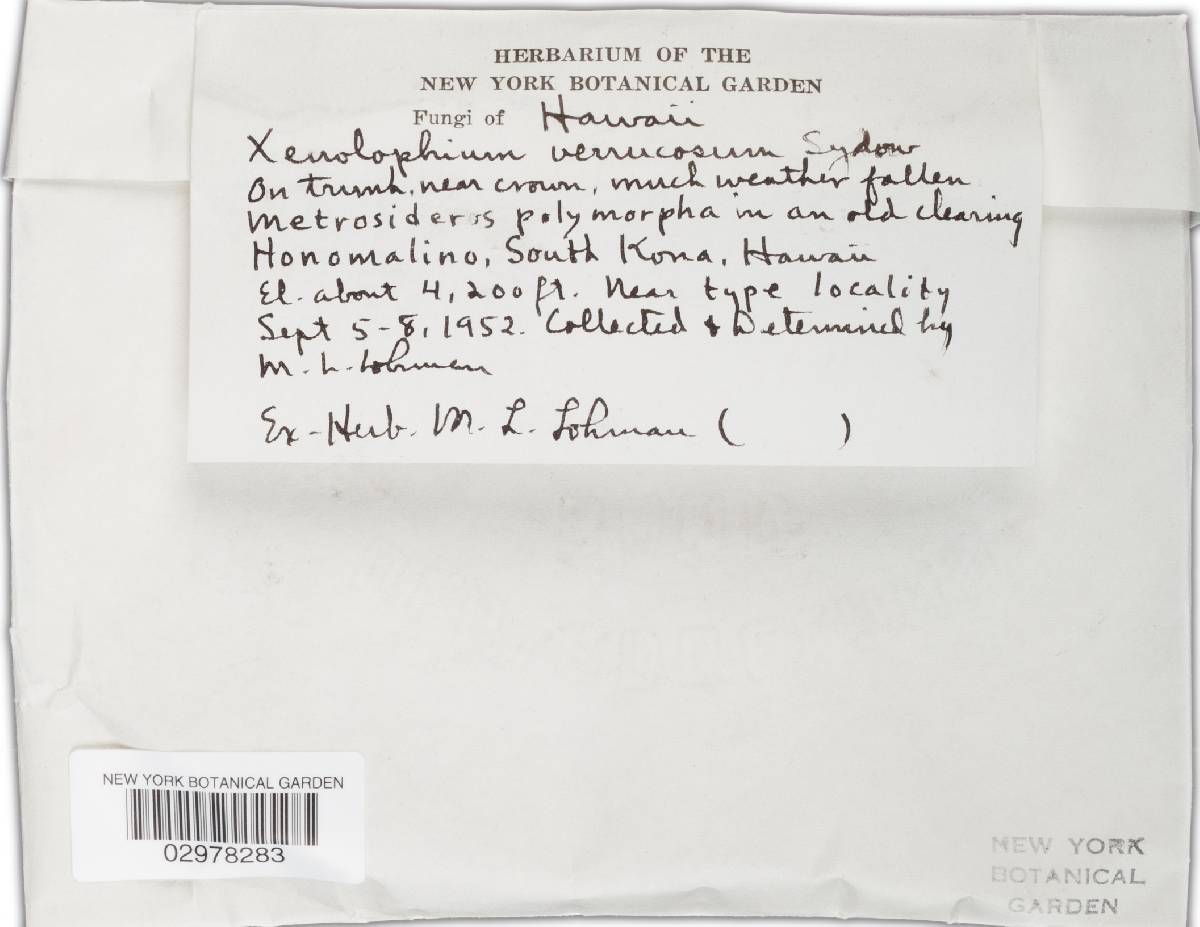 HERBARIUM OF THE
NEW YORK BOTANICAL GARDEN
Fungi of Hawaii
Xenolophium verrucosum Sydow
On trunk, near crown, much weather fallen
Metrosideros polymorpha in an old clearing
Honomalino, South Kona, Hawaii
El. about 4,200 ft. Near type locality
Sept 5-8, 1952. Collected & Determined by
M. L. Lohman
Ex-Herb. M. L. Lohman ( )
NEW YORK BOTANICAL GARDEN
02978283
NEW YORK
BOTANICAL
GARDEN